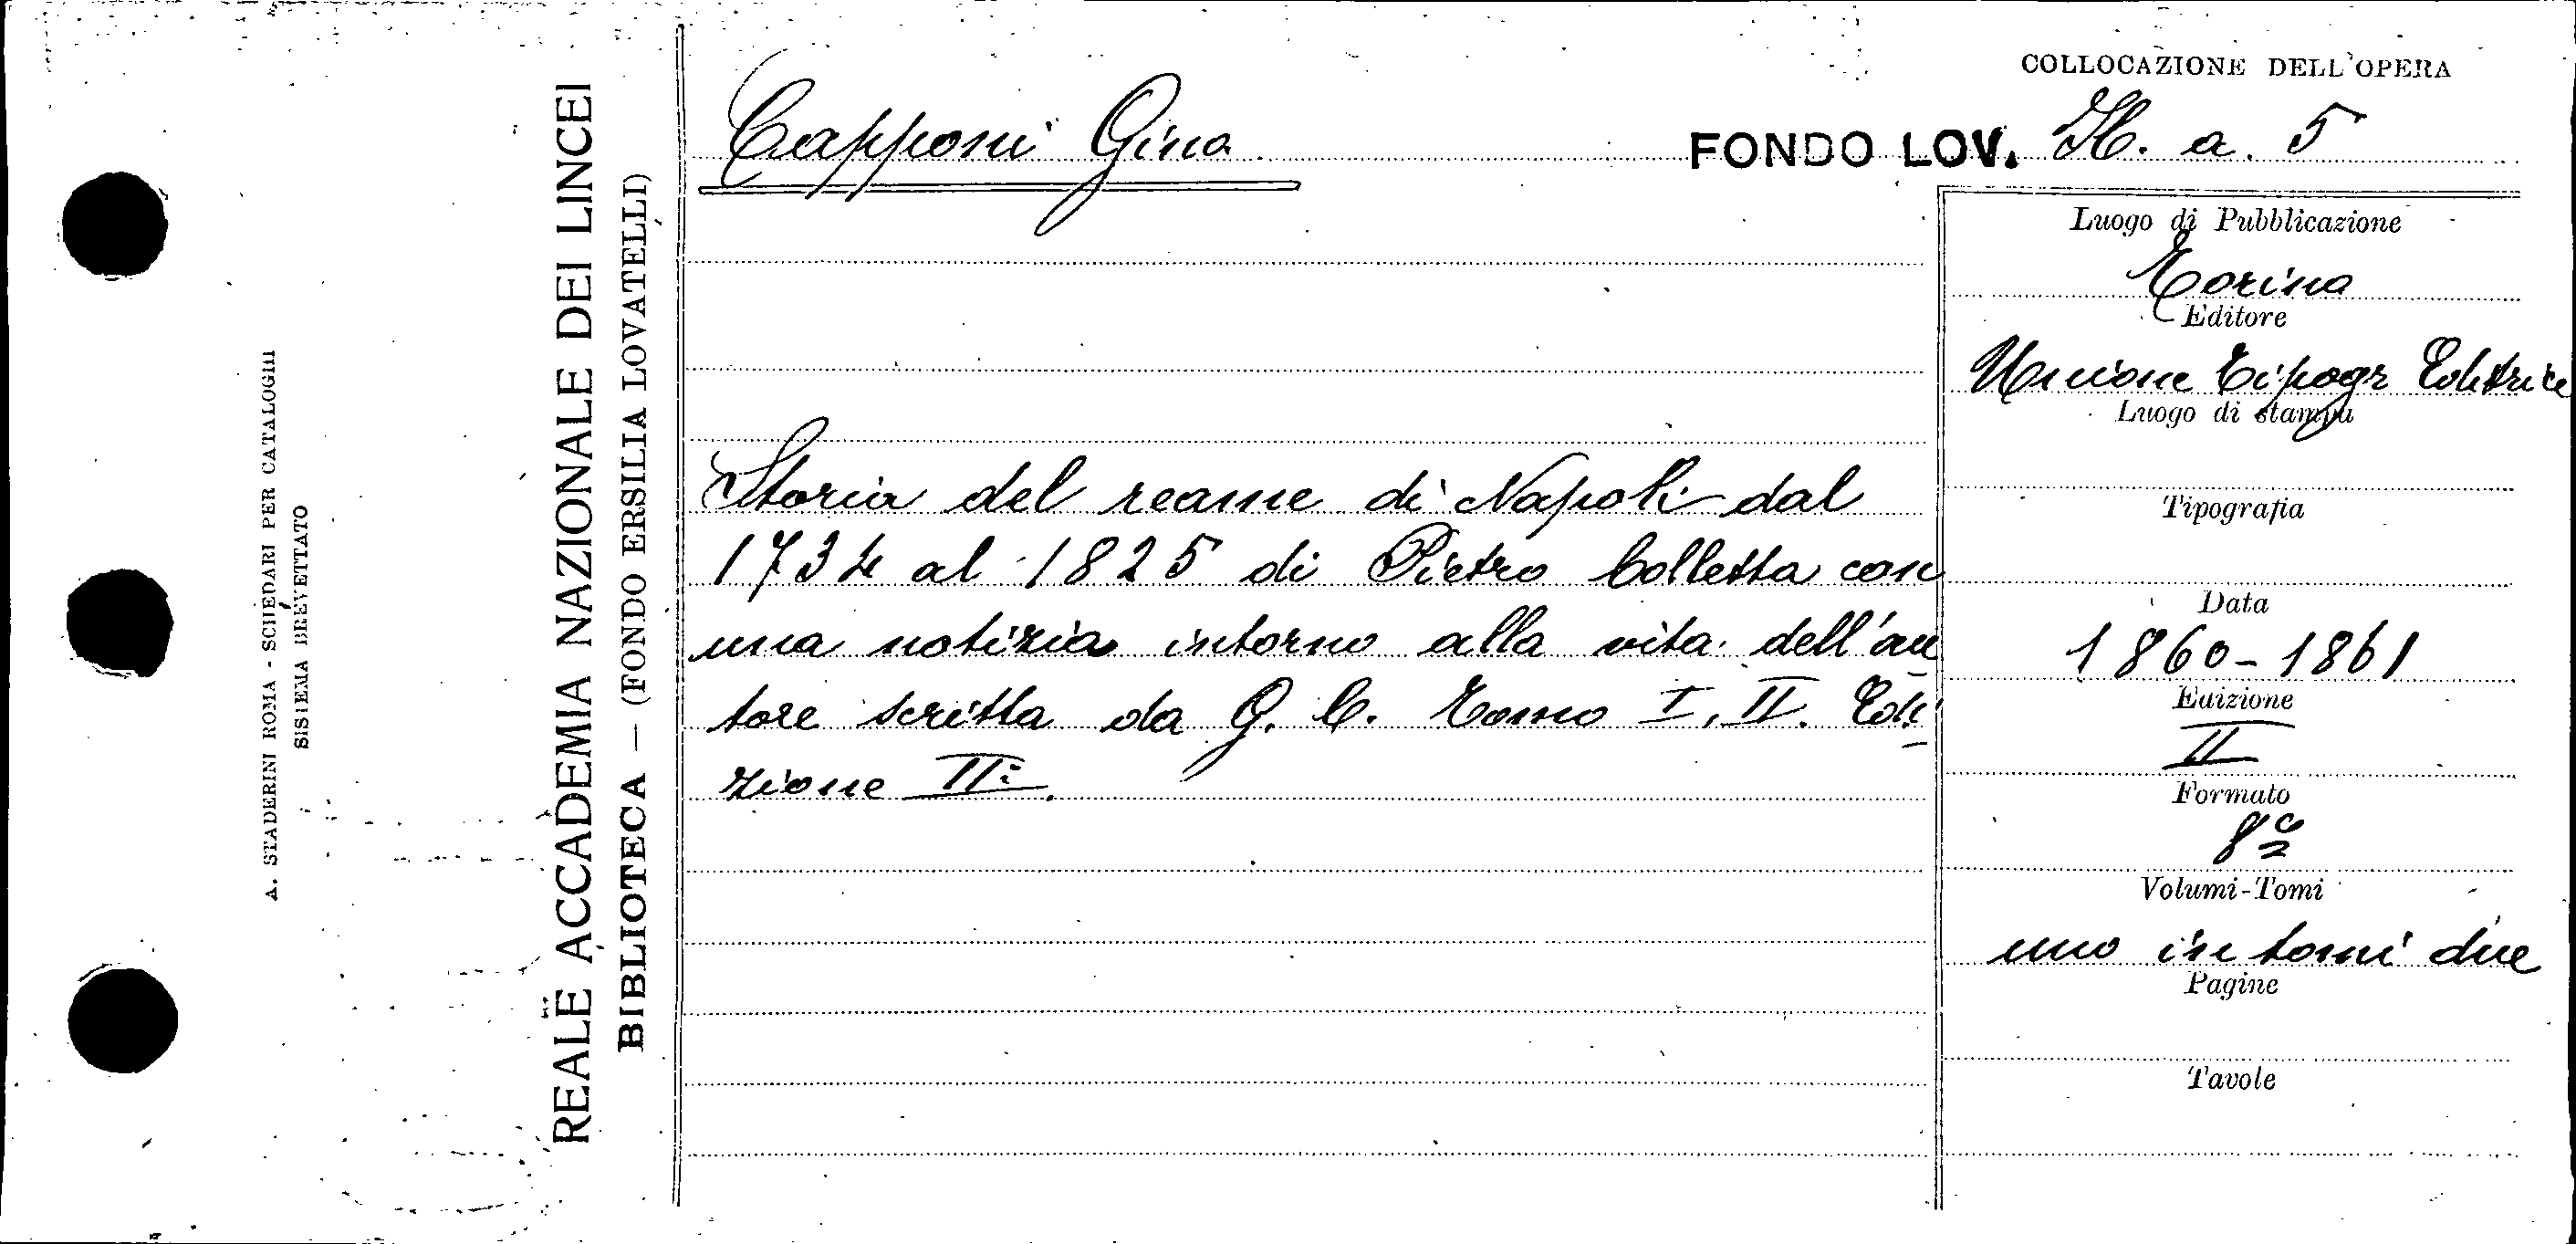 A. STADERINI ROMA - SCHEDARI PER CATALOGHI
SISTEMA BREVETTATO
REALE ACCADEMIA NAZIONALE DEI LINCEI
BIBLIOTECA — (FONDO ERSILIA LOVATELLI)
COLLOCAZIONE DELL'OPERA
Capponi Gino
FONDO LOV. H. a. 5
Storia del reame di Napoli dal
1734 al 1825 di Pietro Colletta con
una notizia intorno alla vita dell'au
tore scritta da G. C. Tomo I, II. Edi
zione IIª.
Luogo di Pubblicazione
Torino
Editore
Unione Tipogr Editrice
Luogo di stampa
Tipografia
Data
1860-1861
Edizione
II
Formato
8º
Volumi-Tomi
uno in tomi due
Pagine
Tavole